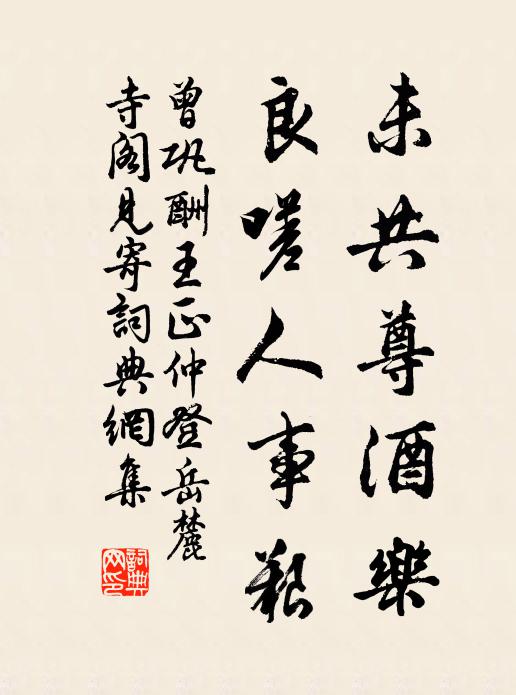 未共尊酒樂
良嗟人事艱
曾巩酬王正仲登岳麓
寺阁見寄詞典網集
詞典网印